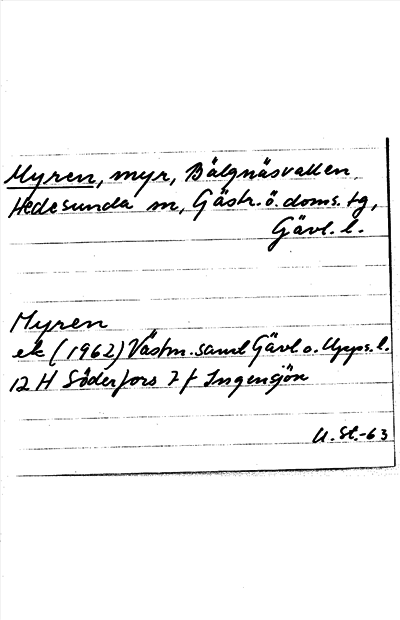 Myren, myr, Bälgnäsvallen,
Hedesunda sn, Gästr. ö. doms. tg,
Gävl. l.
Myren
ek (1962) Västm. samt Gävl o. Upps. l.
12 H Söderfors 7 f Ingensjön
U. St.-63